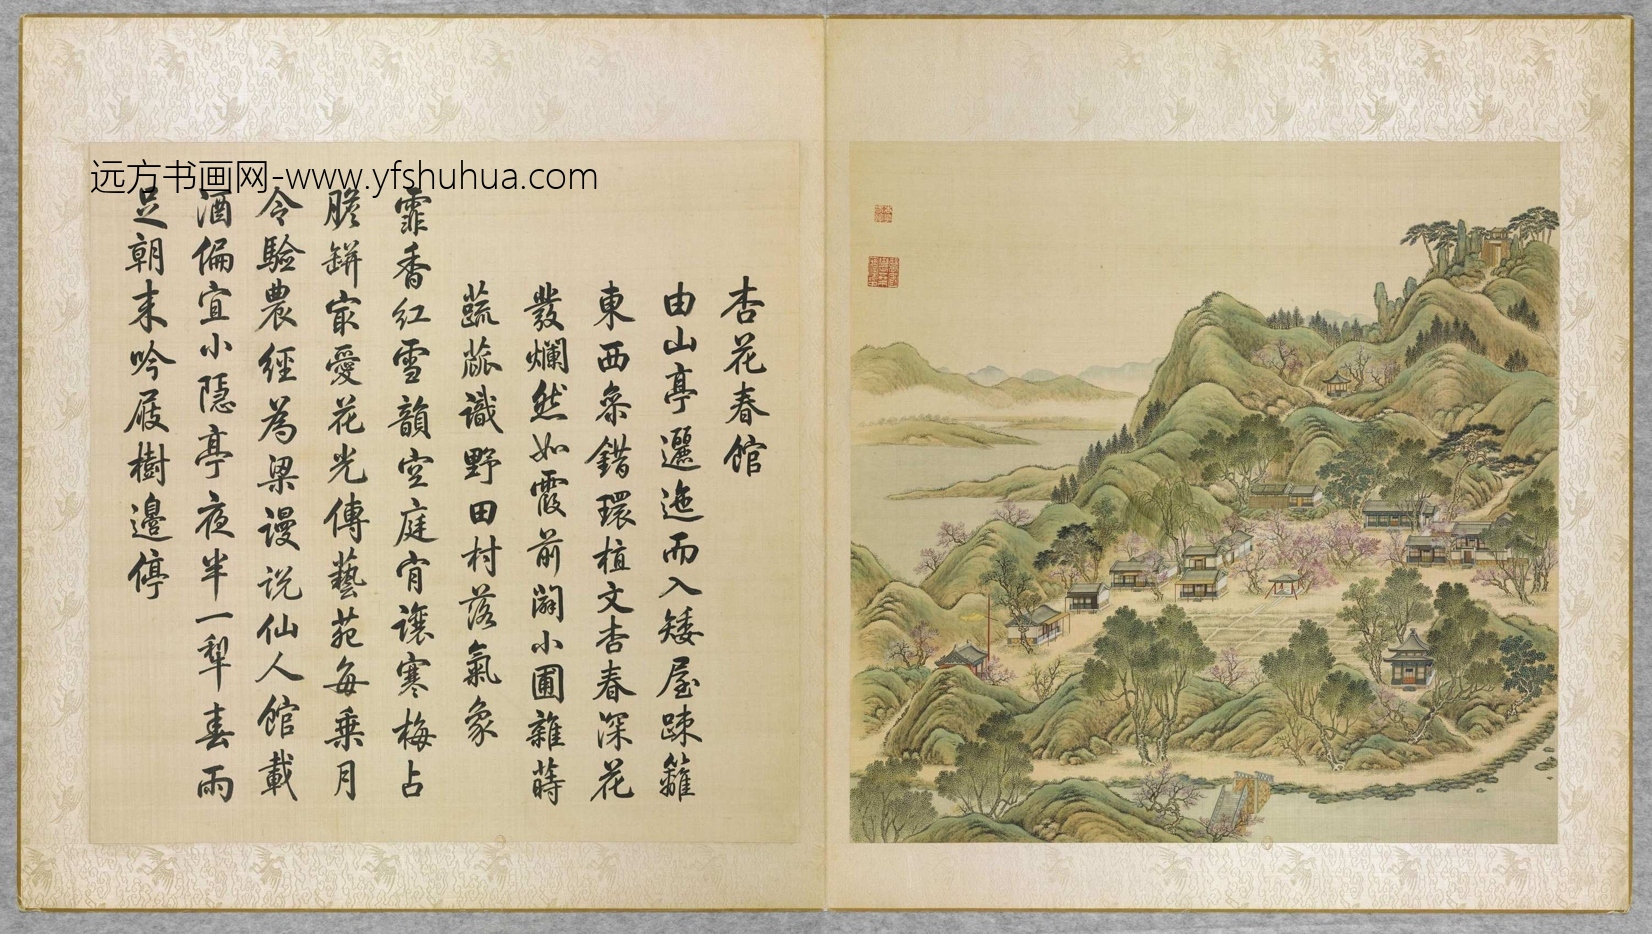 远方书画网-www.yfshuhua.com
杏花春館
由山亭邐迤而入矮屋疎籬
東西叅錯環植文杏春深花
發爛然如霞前闢小圃雜蒔
蔬蓏識野田村落氣象
霏香紅雪韻空庭肯讓寒梅占
膽缾㝡愛花光傳藝苑每乗月
令驗農經為梁謾説仙人館載
酒偏宜小隱亭夜半一犁春雨
足朝来吟屐樹邊停